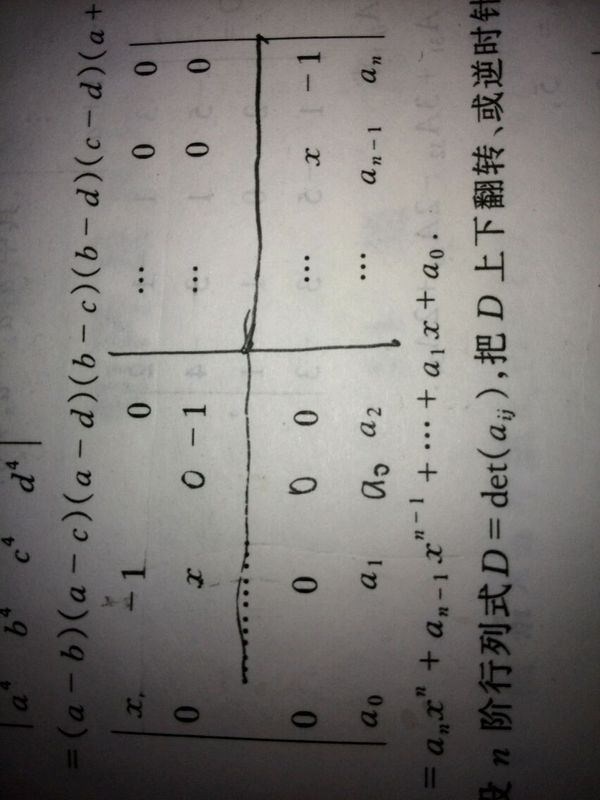 | a⁴ b⁴ c⁴ d⁴ |
= (a − b)(a − c)(a − d)(b − c)(b − d)(c − d)(a +
x −1 0 ⋯ 0 0
0 x 0 −1 ⋯ 0 0
0 0 0 0 ⋯ x −1
a₀ a₁ a₂ ⋯ aₙ₋₁ aₙ
= aₙxⁿ + aₙ₋₁xⁿ⁻¹ + ⋯ + a₁x + a₀.
设 n 阶行列式 D = det(aᵢⱼ),把 D 上下翻转、或逆时针